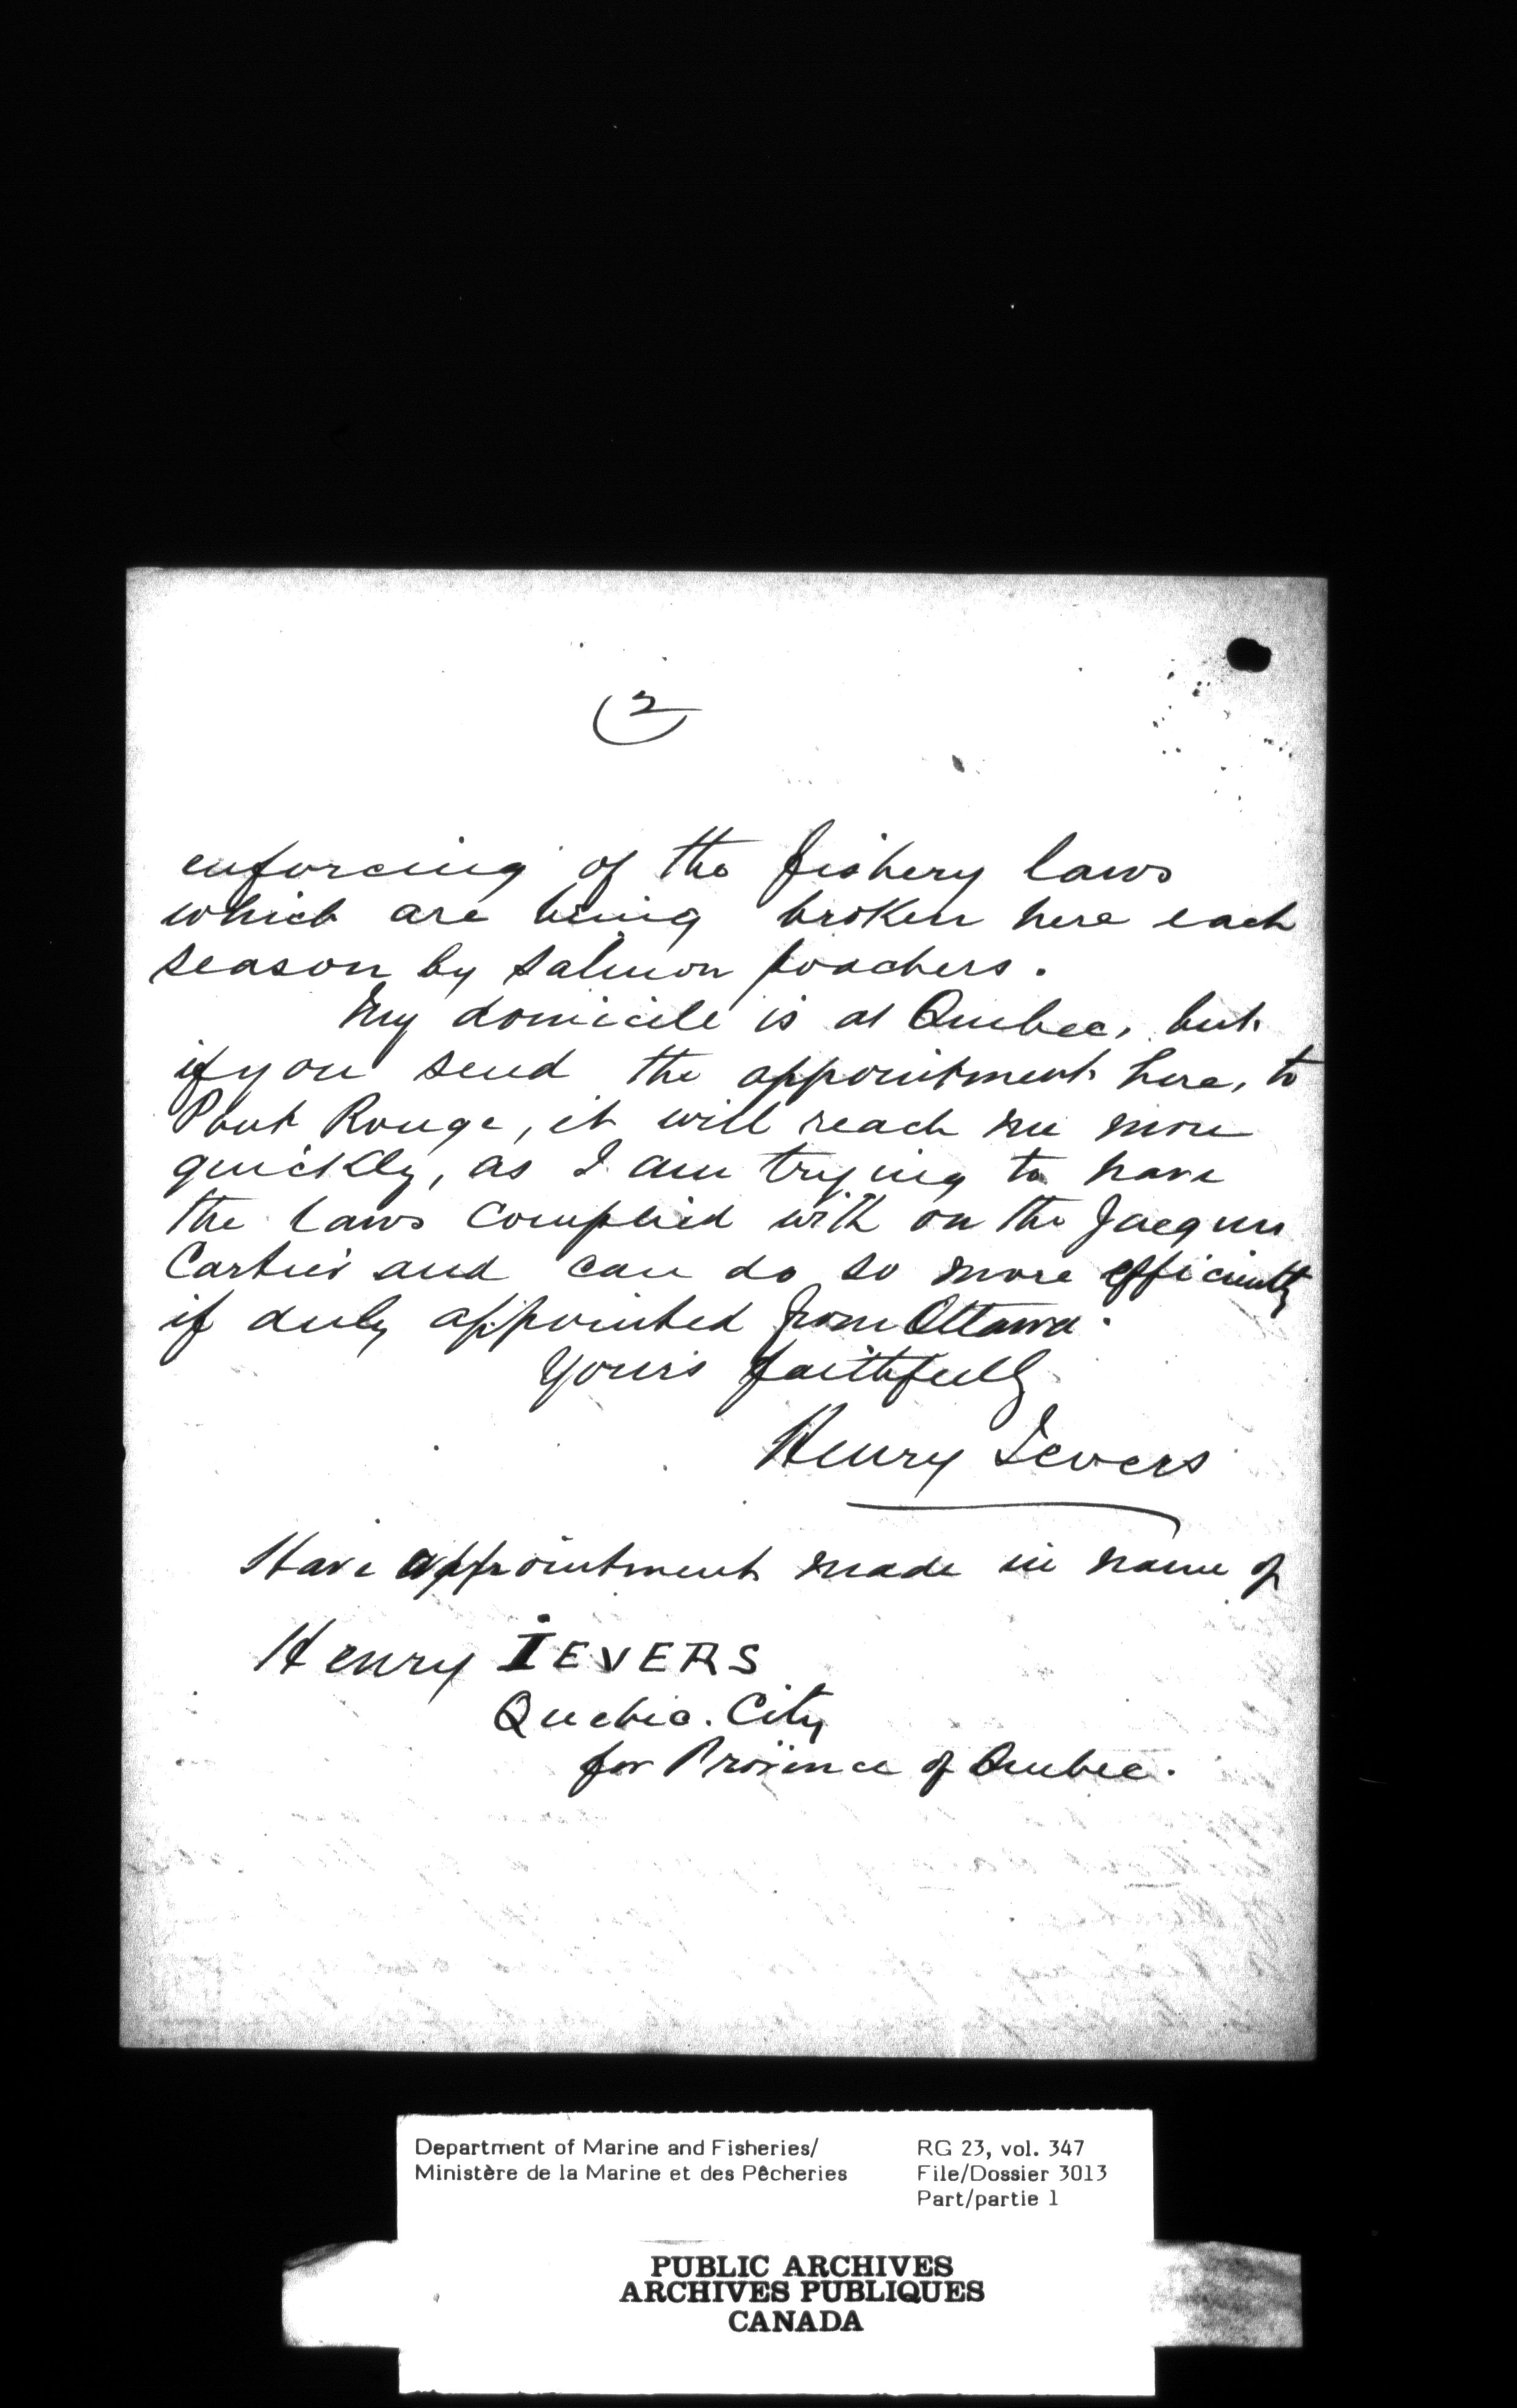 2
enforcing of the fishery laws
which are being broken here each
season by salmon poachers.
My domicile is at Quebec, but
if you send the appointment here, to
Pont Rouge, it will reach me more
quickly, as I am trying to have
the laws complied with on the Jacques
Cartier and can do so more efficiently
if duly appointed from Ottawa.
Yours faithfully
Henry Ievers
Have appointment made in name of
Henry IEVERS
Quebec. City
for Province of Quebec.
Department of Marine and Fisheries/ RG 23, vol. 347
Ministère de la Marine et des Pêcheries File/Dossier 3013
Part/partie 1
PUBLIC ARCHIVES
ARCHIVES PUBLIQUES
CANADA